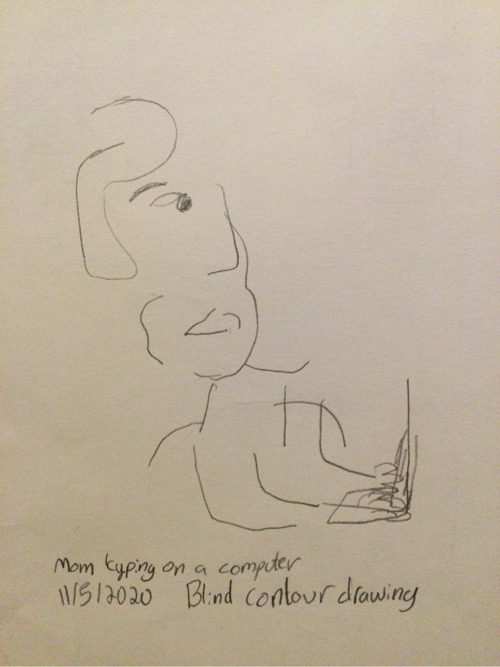 Mom typing on a computer
11/5/2020 Blind contour drawing